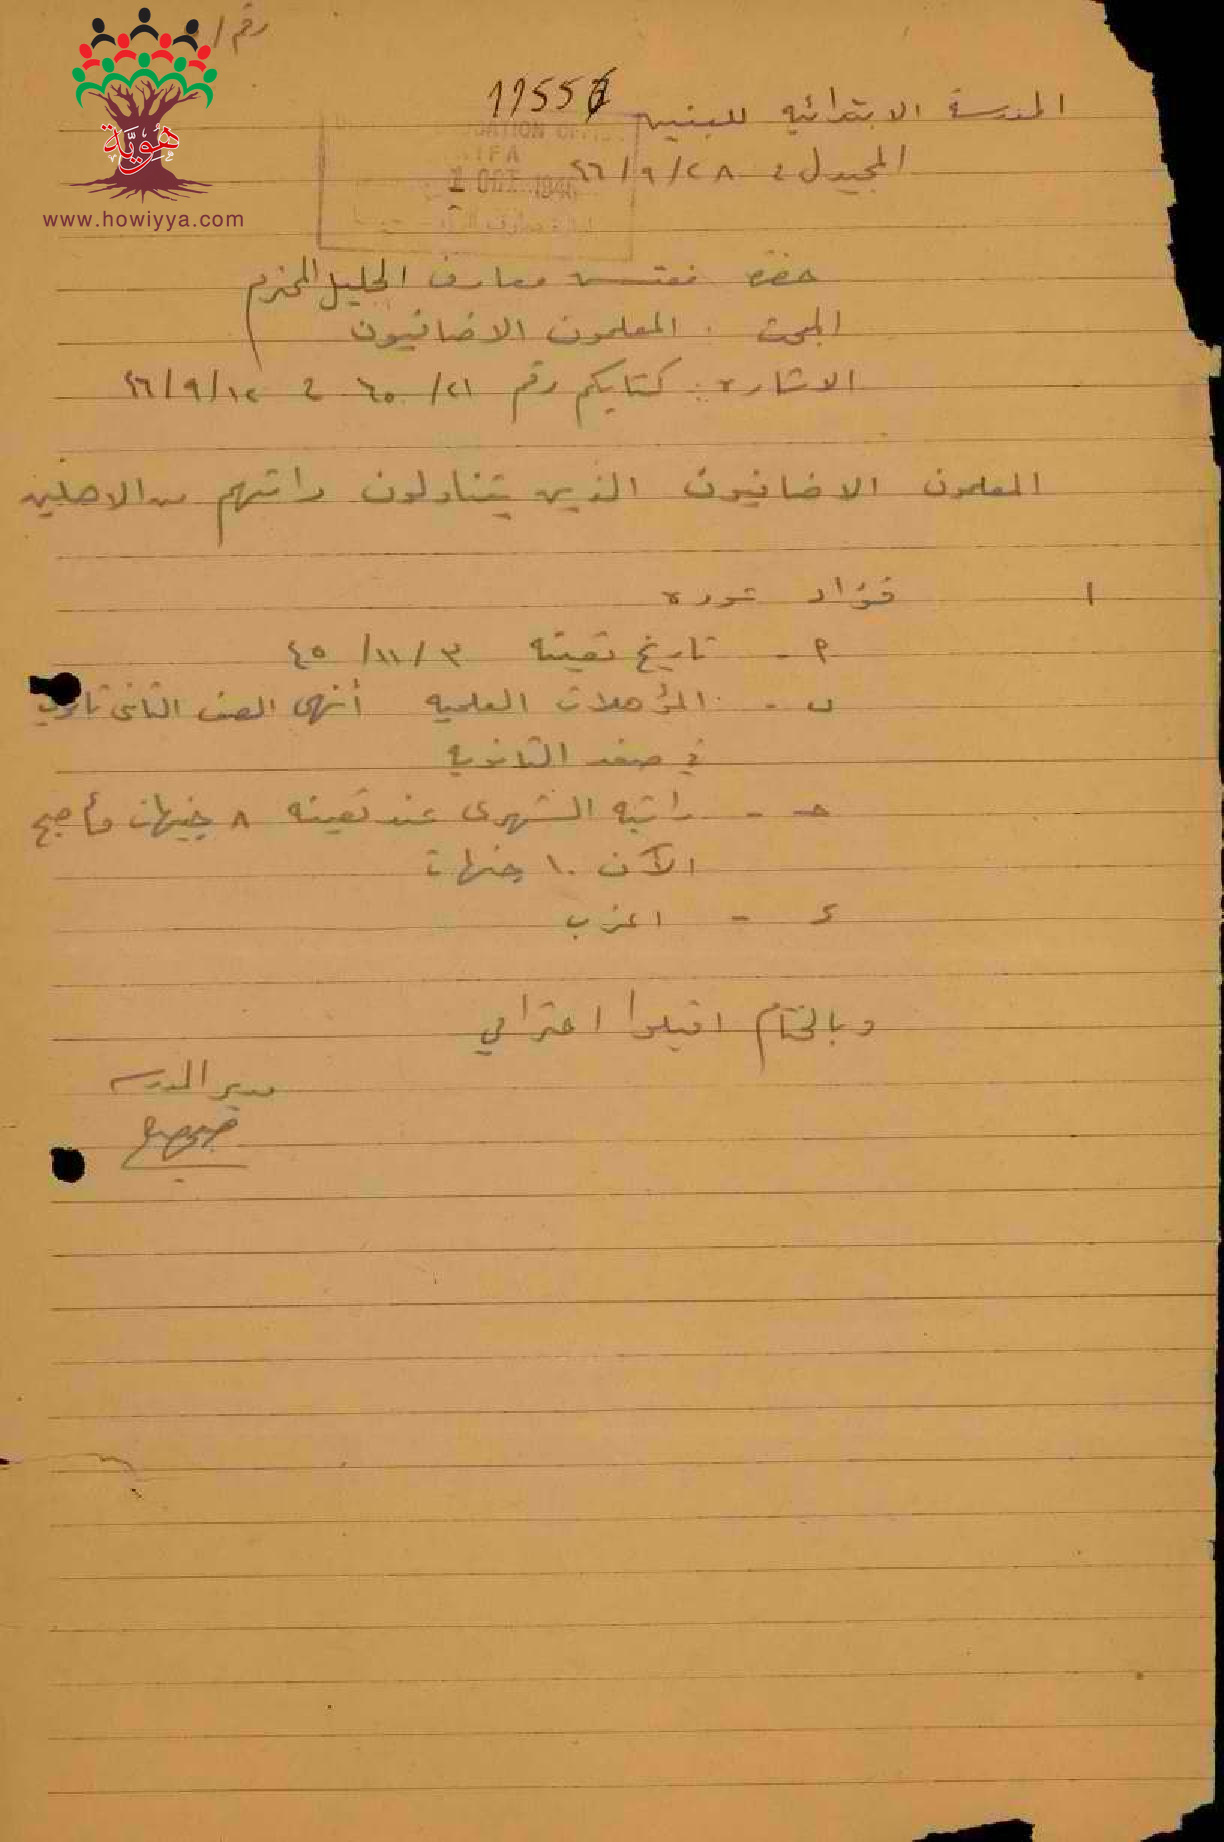 رقم /
هُوِيَّة
www.howiyya.com
المدرسة الابتدائيه للبنين
المجيدل في ٢٨/٩/٤٦
EDUCATION OFF
IFA
1 OCT 1946
حضرة مفتش معارف الجليل المحترم
المبحث : المعلمون الاضافيون
الاشاره : كتابكم رقم ٢١/ ٦٥ في ١٢/٩/٤٦
المعلمون الاضافيون الذين يتناولون راتبهم من الاهلين
١ فؤاد
٩ - تاريخ تعينه ٣/١١/٤٥
ب - المؤهلات العلميه أنهى الصف الثاني ثانوي
في صفد الثانويه
حـ - راتبه الشهرى عند تعينه ٨ جنيهات وأصبح
الآن ١٠ جنيهات
د - اعزب
وبالختام اقبلوا احترامي
مدير المدرسه